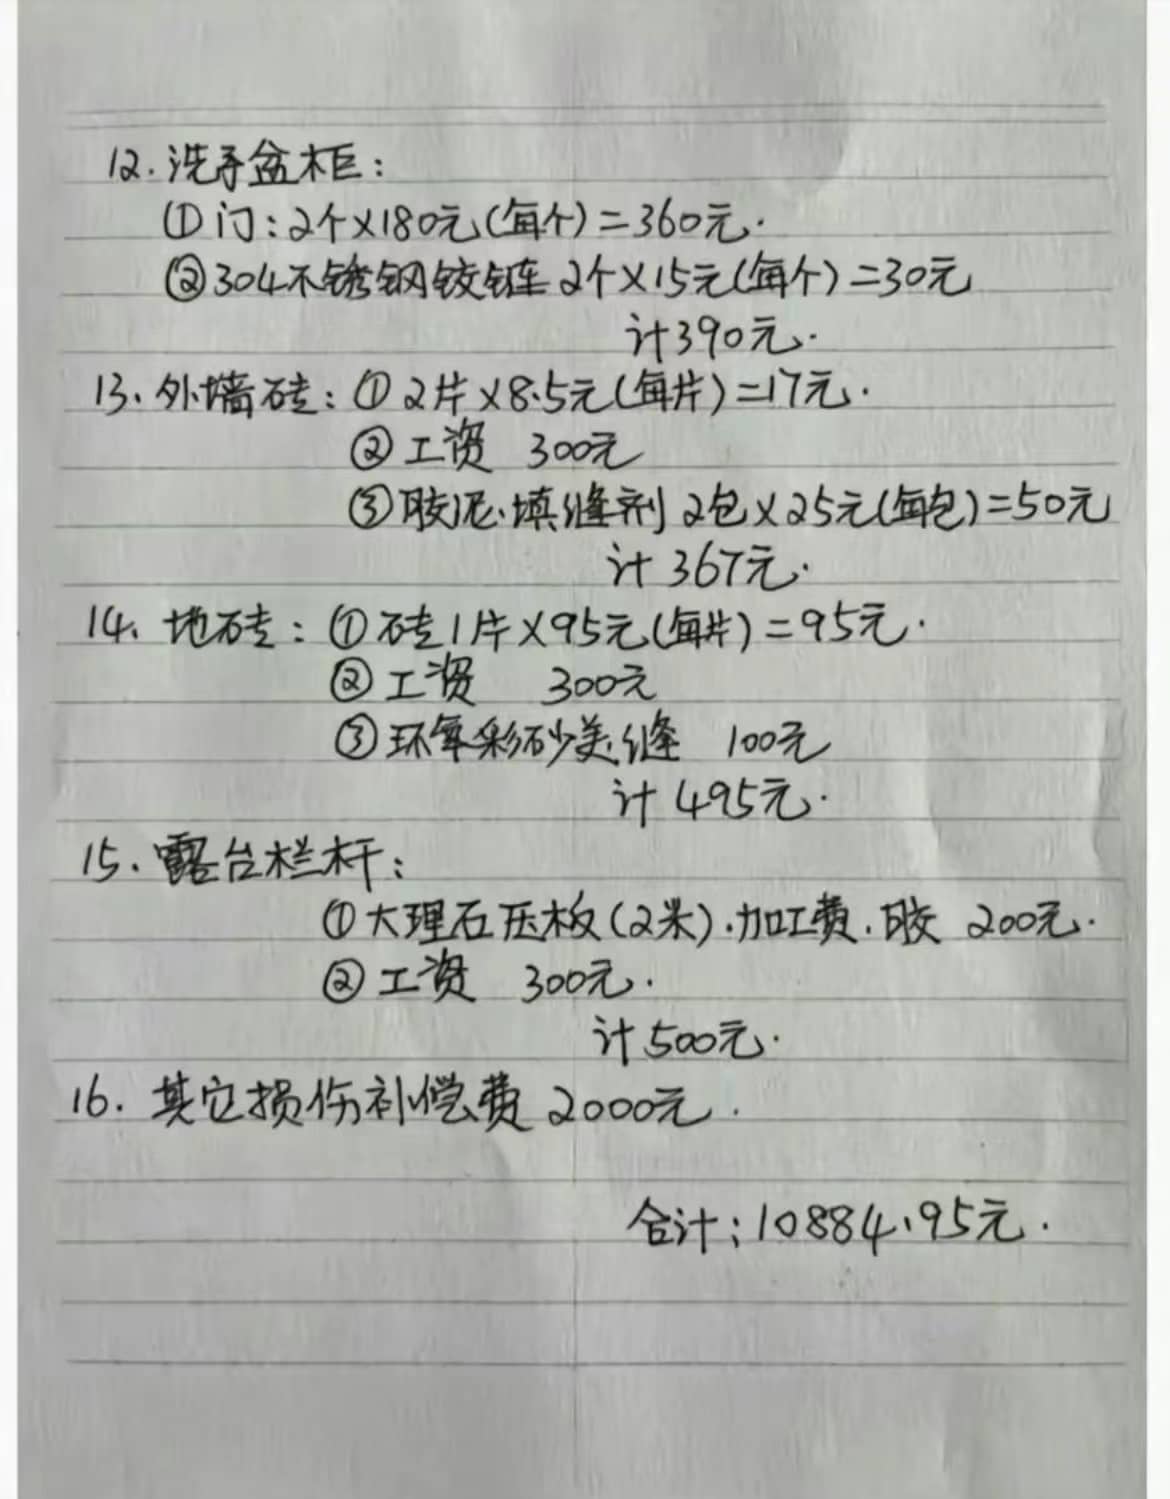 12. 洗手盆柜:
①门:2个×180元(每个)=360元.
②304不锈钢铰链 2个×15元(每个)=30元
计390元.
13. 外墙砖:①2片×8.5元(每片)=17元.
②工资 300元
③胶泥.填缝剂 2包×25元(每包)=50元
计367元.
14. 地砖:①砖1片×95元(每片)=95元.
②工资 300元
③环氧彩砂美缝 100元
计495元.
15. 露台栏杆:
①大理石压板(2米).加工费.胶 200元.
②工资 300元.
计500元.
16. 其它损伤补偿费 2000元.
合计:10884.95元.